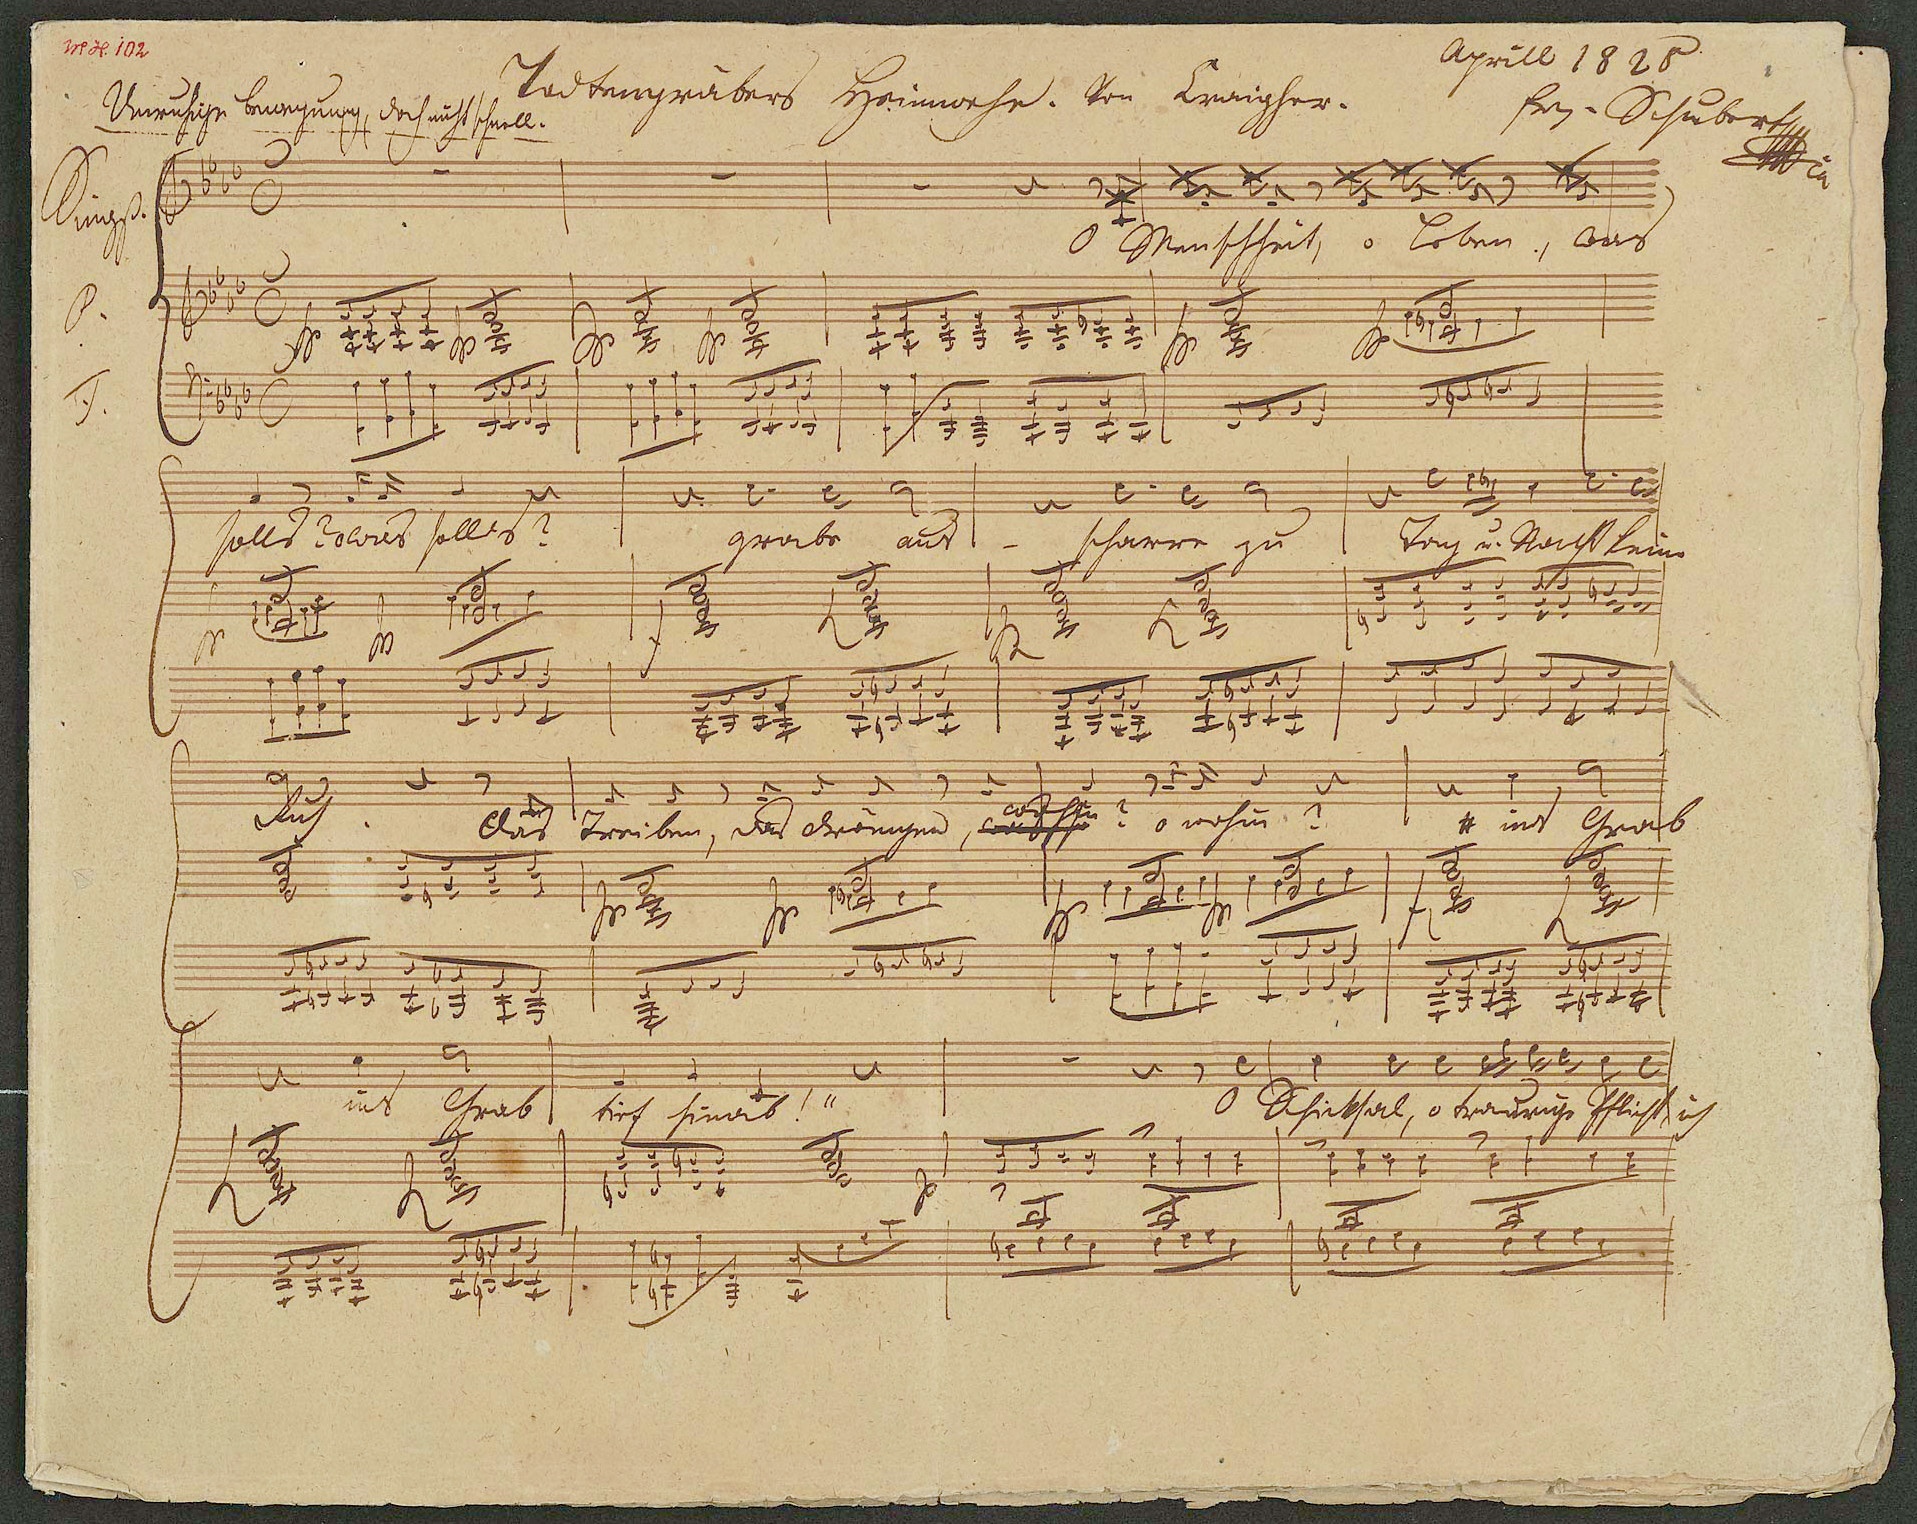 MH. 102
Aprill 1825
Todtengräbers Heimwehe. Von Craigher.
Unruhige Bewegung, doch nicht schnell.
Frz. Schubert
Singst.
P.
F.
O Menschheit, o Leben, was
solls? o was solls?
grabe aus - scharre zu
Tag u. Nacht keine
Ruh.
das Treiben, das drängen, wohin? o wohin?
ins Grab
ins Grab
tief hinab!"
O Schicksal, o traurige Pflicht ich